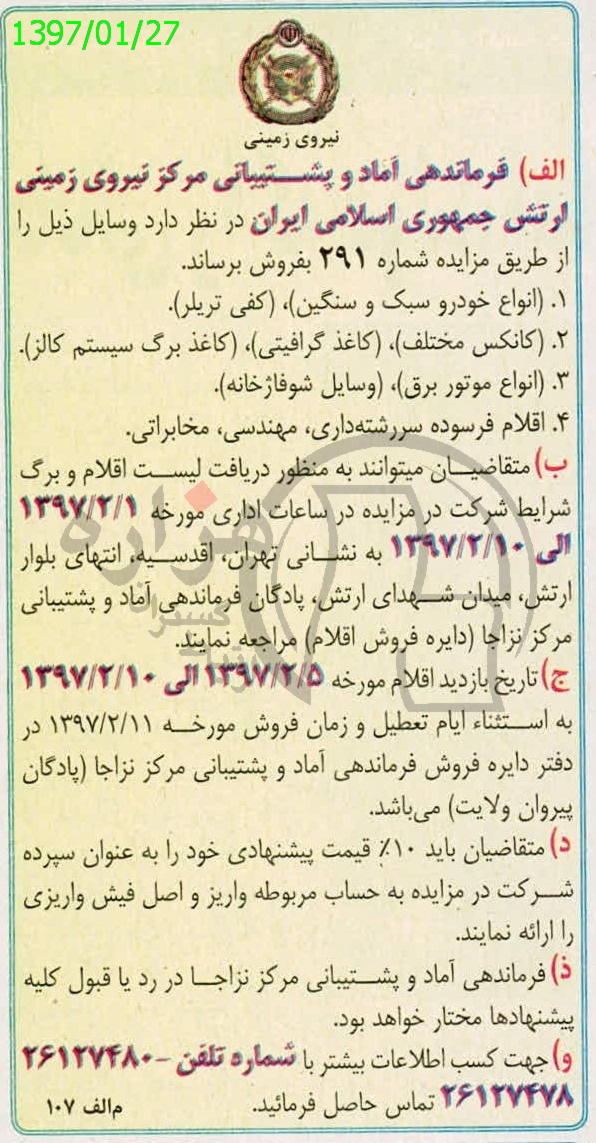 1397/01/27
نیروی زمینی
الف) فرماندهی آماد و پشتیبانی مرکز نیروی زمینی
ارتش جمهوری اسلامی ایران در نظر دارد وسایل ذیل را
از طریق مزایده شماره ۲۹۱ بفروش برساند.
۱. (انواع خودرو سبک و سنگین)، (کفی تریلر).
۲. (کانکس مختلف)، (کاغذ گرافیتی)، (کاغذ برگ سیستم کالز).
۳. (انواع موتور برق)، (وسایل شوفاژخانه).
۴. اقلام فرسوده سررشته‌داری، مهندسی، مخابراتی.
ب) متقاضیان میتوانند به منظور دریافت لیست اقلام و برگ
شرایط شرکت در مزایده در ساعات اداری مورخه ۱۳۹۷/۲/۱
الی ۱۳۹۷/۲/۱۰ به نشانی تهران، اقدسیه، انتهای بلوار
ارتش، میدان شهدای ارتش، پادگان فرماندهی آماد و پشتیبانی
مرکز نزاجا (دایره فروش اقلام) مراجعه نمایند.
ج) تاریخ بازدید اقلام مورخه ۱۳۹۷/۲/۵ الی ۱۳۹۷/۲/۱۰
به استثناء ایام تعطیل و زمان فروش مورخه ۱۳۹۷/۲/۱۱ در
دفتر دایره فروش فرماندهی آماد و پشتیبانی مرکز نزاجا (پادگان
پیروان ولایت) می‌باشد.
د) متقاضیان باید ۱۰٪ قیمت پیشنهادی خود را به عنوان سپرده
شرکت در مزایده به حساب مربوطه واریز و اصل فیش واریزی
را ارائه نمایند.
ذ) فرماندهی آماد و پشتیبانی مرکز نزاجا در رد یا قبول کلیه
پیشنهادها مختار خواهد بود.
و) جهت کسب اطلاعات بیشتر با شماره تلفن ۲۶۱۲۷۴۸۰-
۲۶۱۲۷۴۷۸ تماس حاصل فرمائید.
م‌الف ۱۰۷
هزاره